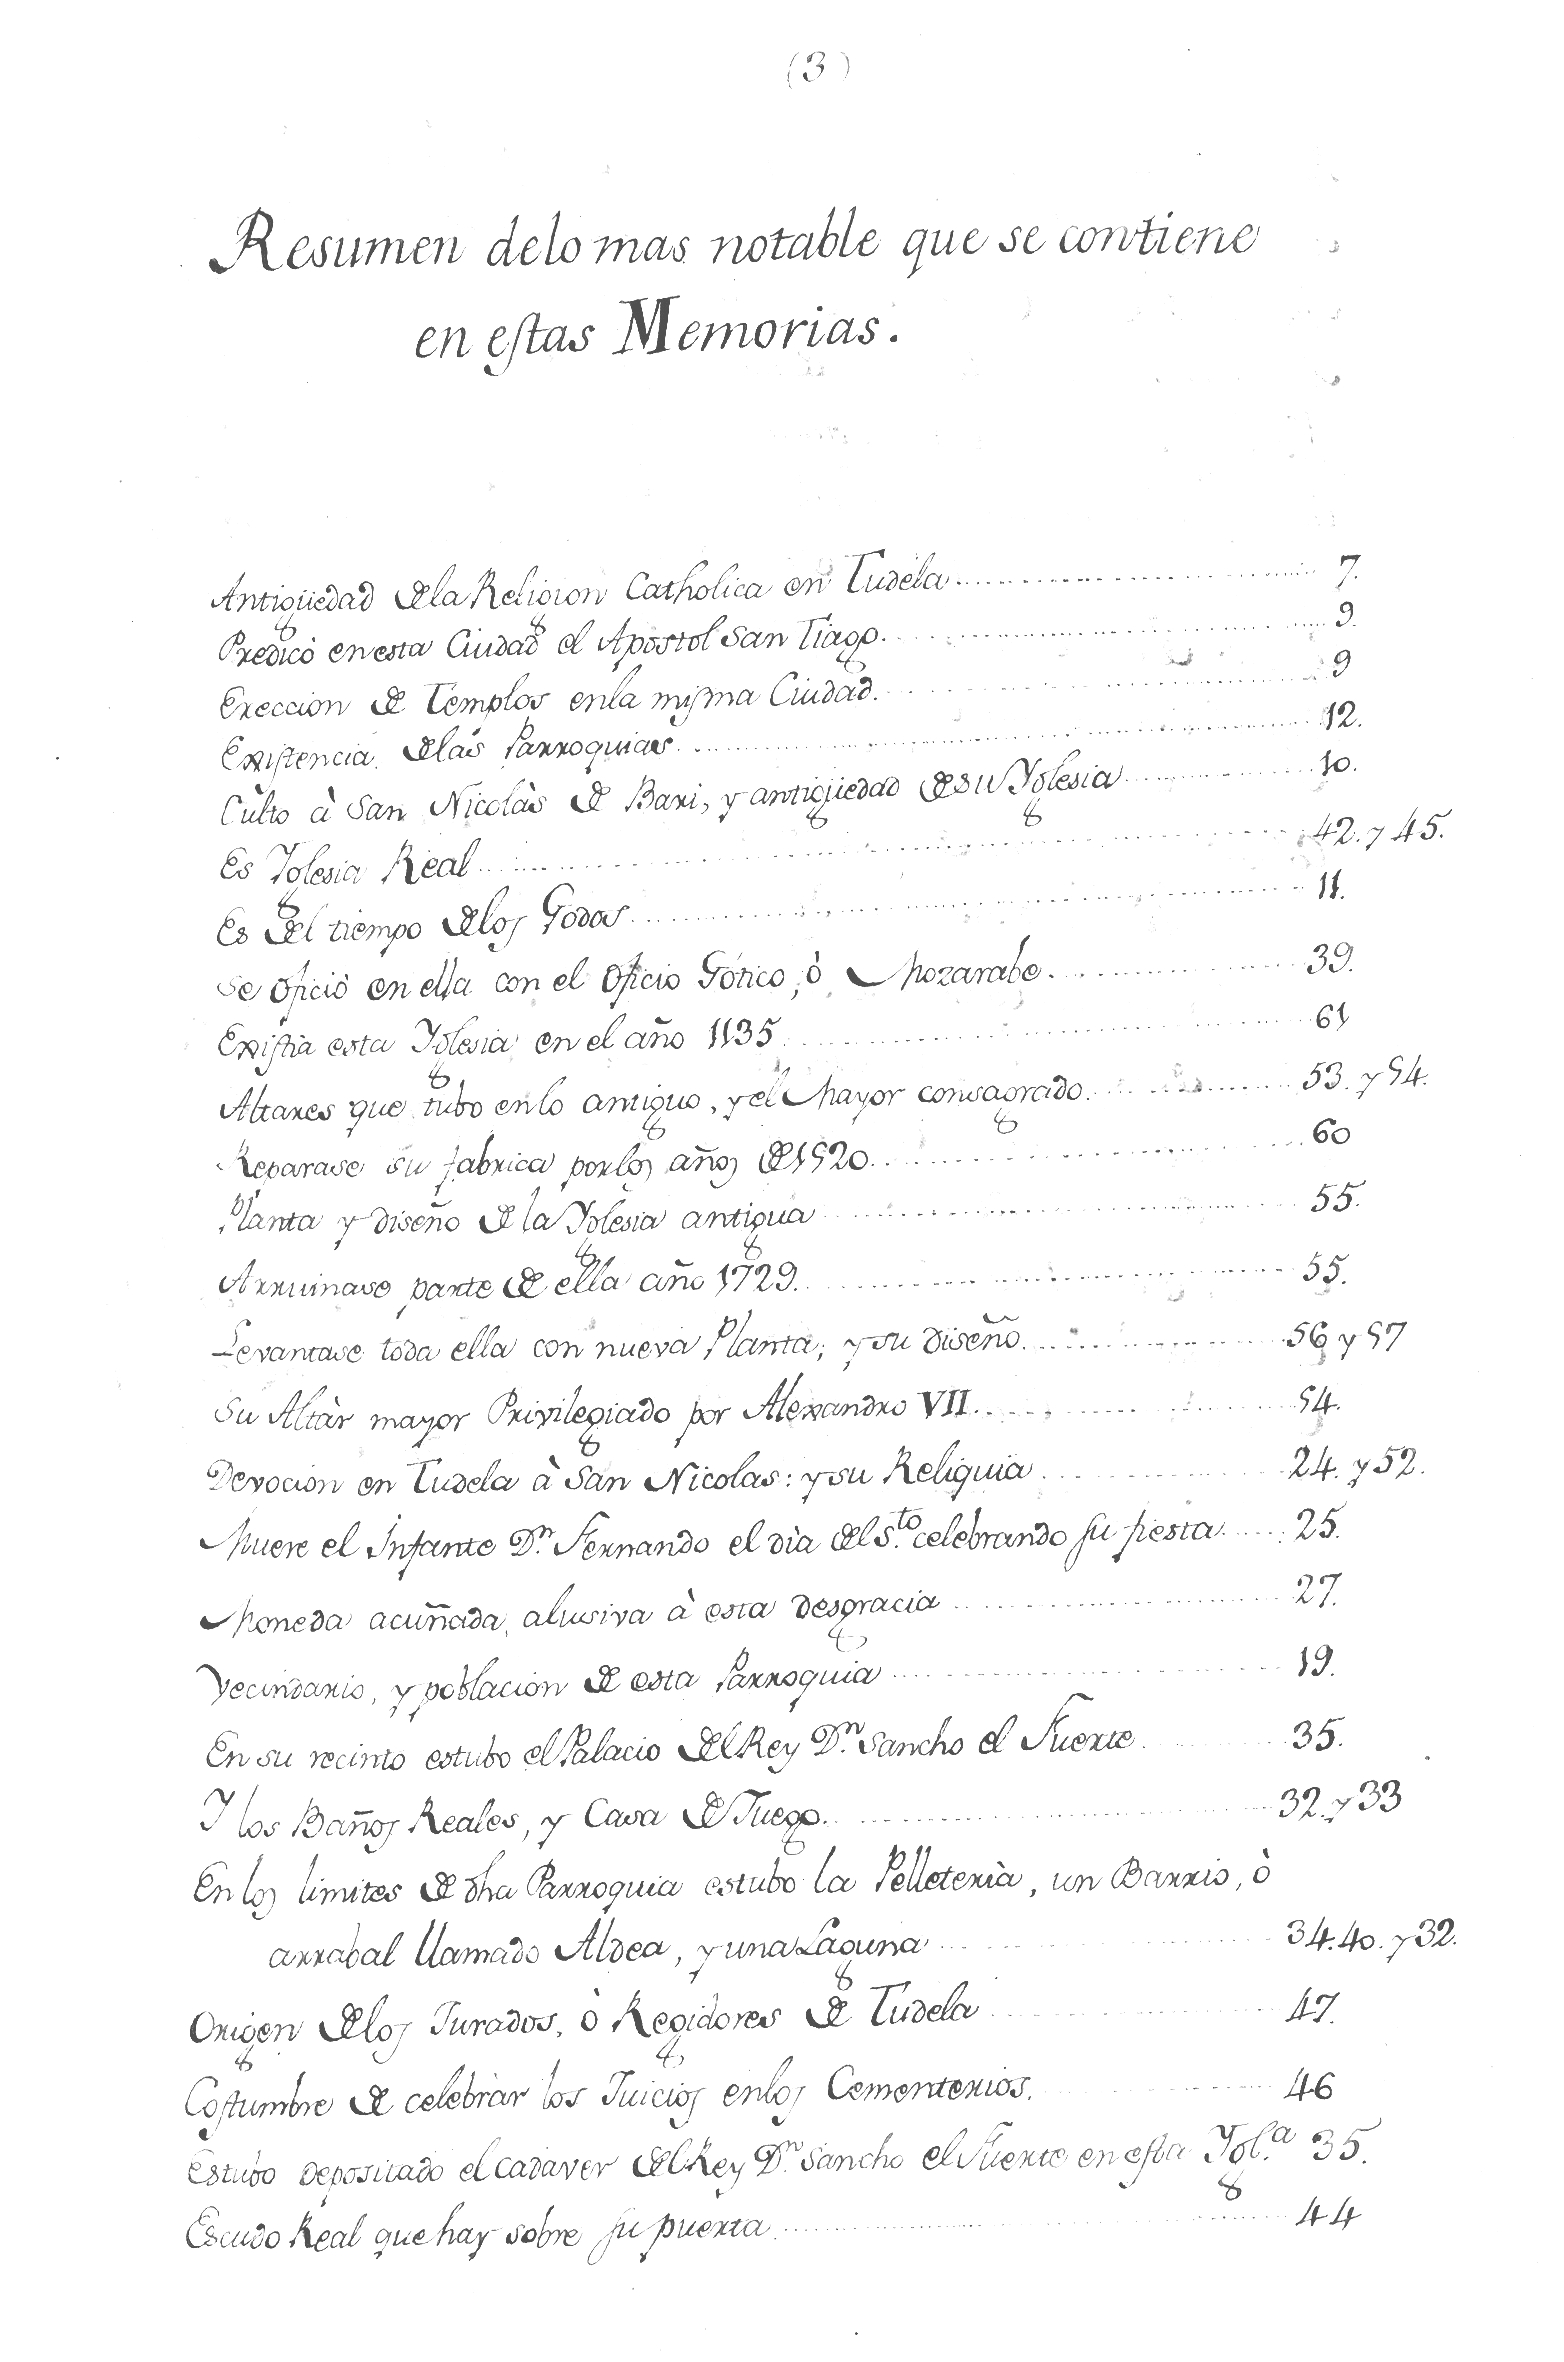 (3)
Resumen delo mas notable que se contiene
en estas Memorias.
Antigüedad dela Religion Catholica en Tudela 7.
Predicó en esta Ciudad el Apostol San Tiago. 9.
Ereccion de Templos enla misma Ciudad. 9
Existencia delas Parroquias. 12.
Culto à San Nicolàs de Bari, y antigüedad de su Yglesia 10.
Es Yglesia Real 42. y 45.
Es del tiempo delos Godos 11.
Se oficiò en ella con el Oficio Gótico, ò Mozarabe. 39.
Existia esta Yglesia en el año 1135 61
Altares que tubo enlo antiguo, y el Mayor consagrado. 53. y 54.
Reparase su fabrica por los años de 1520. 60
Planta y diseño de la Yglesia antigua 55.
Arruinase parte de ella año 1729. 55.
Levantase toda ella con nueva Planta; y su diseño. 56 y 57
Su Altàr mayor Privilegiado por Alexandro VII. 54.
Devocion en Tudela à San Nicolas: y su Reliquia 24. y 52.
Muere el Infante Dn. Fernando el dia del Sto. celebrando su fiesta 25.
Moneda acuñada, alusiva à esta desgracia 27.
Vecindario, y poblacion de esta Parroquia 19.
En su recinto estubo el Palacio del Rey Dn. Sancho el Fuerte 35.
Y los Baños Reales, y Casa de Juego. 32. y 33
En los limites de dha Parroquia estubo la Pelleteria, un Barrio, ò
arrabal llamado Aldea, y una Laguna 34. 40. y 32.
Origen delos Jurados, ò Regidores de Tudela 47.
Costumbre de celebrar los Juicios enlos Cementerios. 46
Estubo depositado el cadaver del Rey Dn. Sancho el Fuerte en esta Ygl.a 35.
Escudo Real que hay sobre su puerta 44